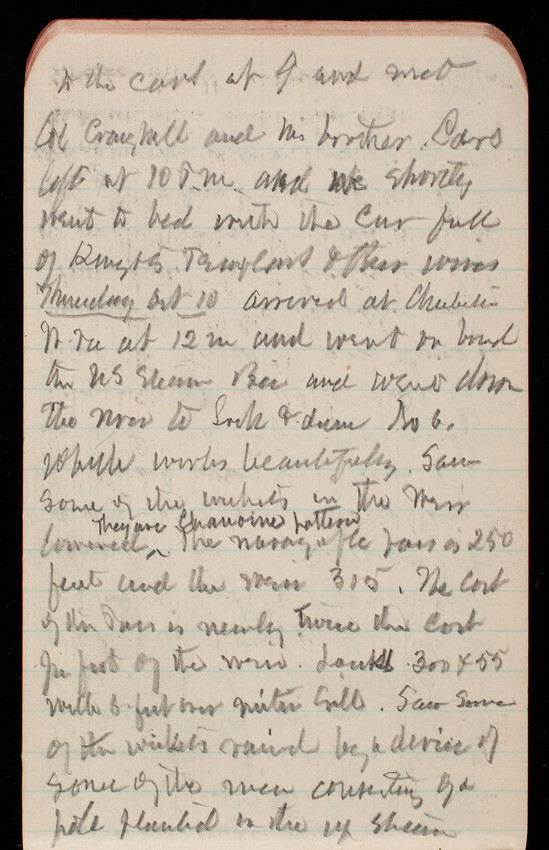 to the cars at 9. and met
Col Craighill and his brother. Cars
left at 10 P.m. and we shortly
went to bed with the Car full
of Knights Templars & their wives
Thursday Oct 10 arrived at Charleston
W. Va at 12 m and went on board
the US Steam Bee and went down
the river to Lock & dam No 6.
which works beautifully. Saw
some of the wickets in the Weir
They are Chanoine pattern
lowered ^ The navigable pass is 250
feet and the weir 315. The Cost
of the Pass is nearly twice the cost
per foot of the weir. Locks 300 x 55
with 6 feet over miter Sill. Saw Some
of the wickets raised by a device of
Some of the men consisting of a
pole planted in the up stream